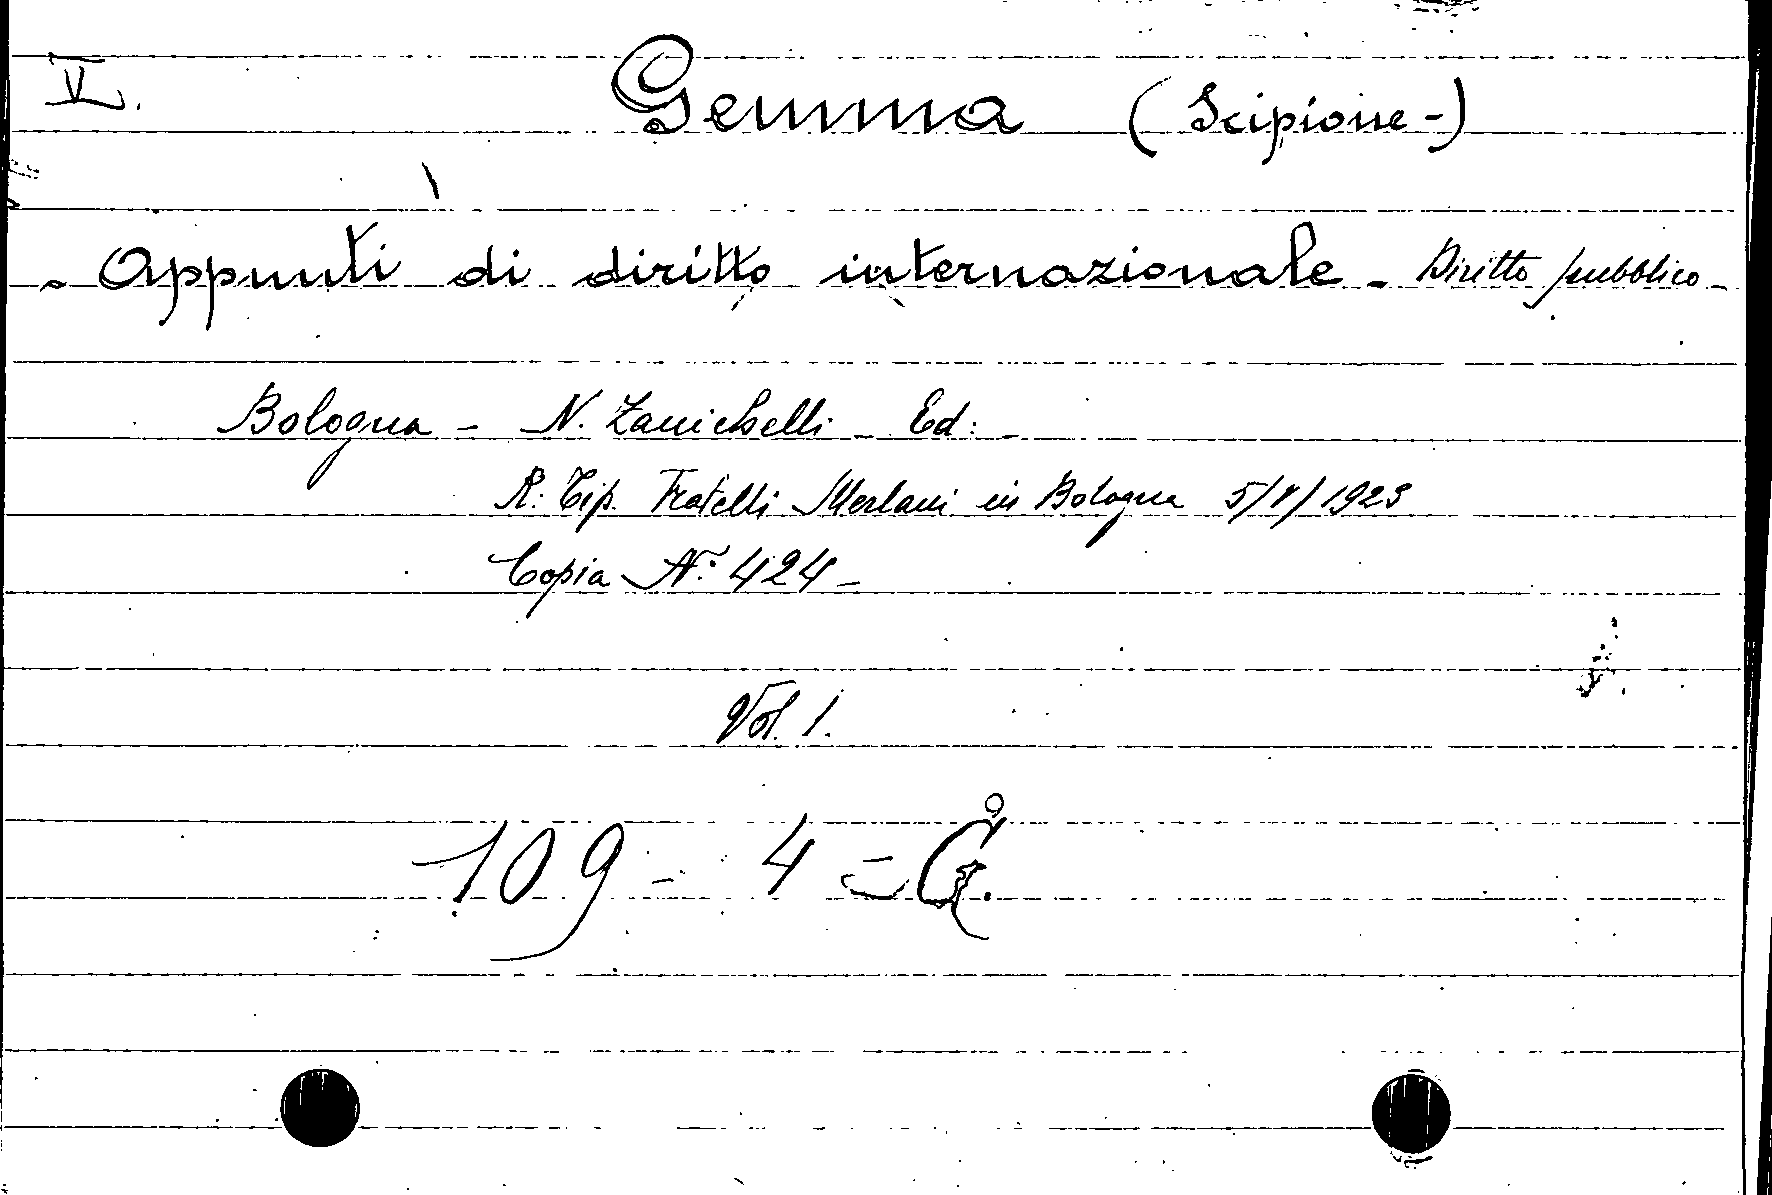 V. Gemma (Scipione-)
- Appunti di diritto internazionale - Diritto pubblico -
Bologna - N. Zanichelli - Ed: -
R: Tip. Fratelli Merlani in Bologna 5/1/1923
Copia N.° 424 -
Vol. 1.
109 - 4 = G.